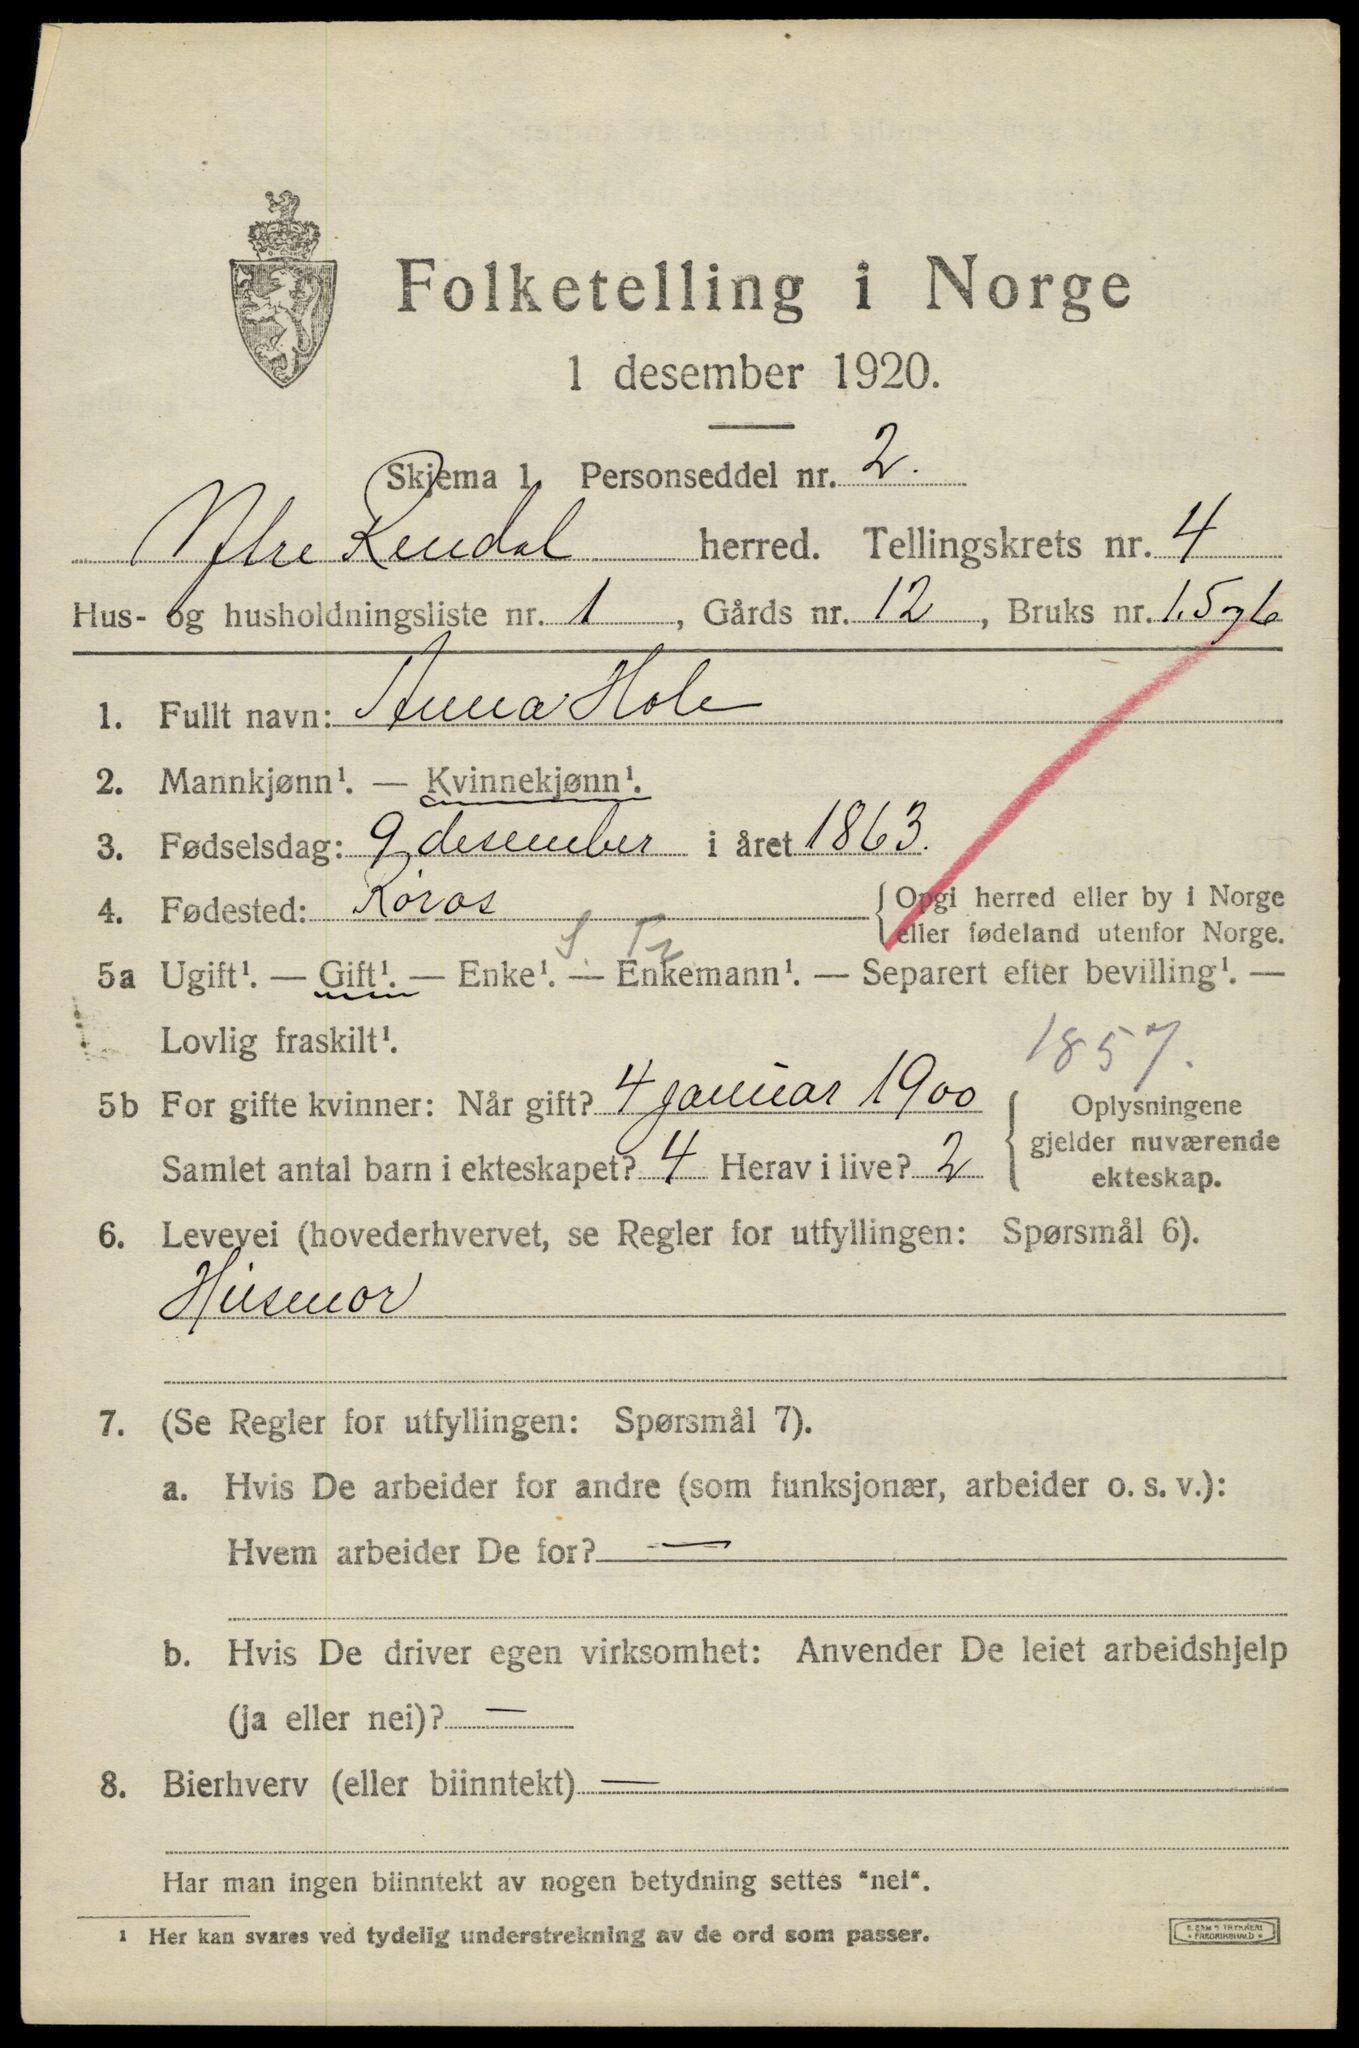 Folketelling i Norge
1 desember 1920.
Skjema 1. Personseddel nr. 2.
Ytre Rendal herred. Tellingskrets nr. 4
Hus- og husholdningsliste nr. 1, Gårds nr. 12, Bruks nr. 1.5 og 6
1. Fullt navn: Anna Hole
2. Mannkjønn¹. — Kvinnekjønn¹.
3. Fødselsdag: 9 desember i året 1863.
4. Fødested: Røros {Opgi herred eller by i Norge
eller fødeland utenfor Norge.
S. Tr
5a Ugift¹. — Gift¹. — Enke¹. — Enkemann¹. — Separert efter bevilling¹. —
Lovlig fraskilt¹.
1857.
5b For gifte kvinner: Når gift? 4 januar 1900
Samlet antal barn i ekteskapet? 4 Herav i live? 2
{Oplysningene
gjelder nuværende
ekteskap.
6. Levevei (hovederhvervet, se Regler for utfyllingen: Spørsmål 6).
Husmor
7. (Se Regler for utfyllingen: Spørsmål 7).
a. Hvis De arbeider for andre (som funksjonær, arbeider o. s. v.):
Hvem arbeider De for? —
b. Hvis De driver egen virksomhet: Anvender De leiet arbeidshjelp
(ja eller nei)? —
8. Bierhverv (eller biinntekt) —
Har man ingen biinntekt av nogen betydning settes "nei".
¹ Her kan svares ved tydelig understrekning av de ord som passer.